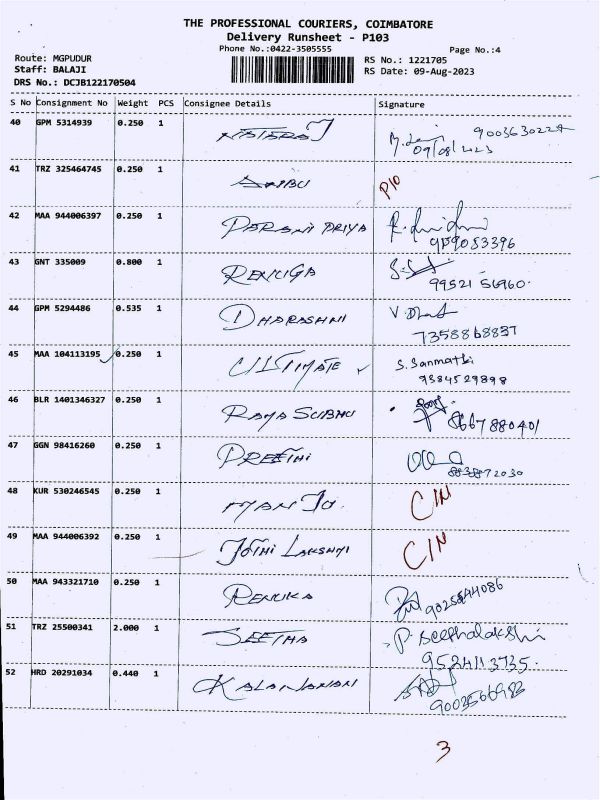 THE PROFESSIONAL COURIERS, COIMBATORE
Delivery Runsheet - P103
Phone No.:0422-3505555 Page No.:4
Route: MGPUDUR RS No.: 1221705
Staff: BALAJI RS Date: 09-Aug-2023
DRS No.: DCJB122170504
S No Consignment No Weight PCS Consignee Details Signature
40 GPM 5314939 0.250 1 NATARAJ 9003630227
09/08/2023
41 TRZ 325464745 0.250 1 ANBU P10
42 MAA 944006397 0.250 1 DARANI PRIYA
9159053396
43 GNT 335009 0.800 1 RENUGA
99521 56960.
44 GPM 5294486 0.535 1 DHARASHNI V. Dhar
7358868837
45 MAA 104113195 0.250 1 ULTIMATE S. Sanmathi
9384529898
46 BLR 1401346327 0.250 1 RAMA SUBBU
8667880401
47 GGN 98416260 0.250 1 PREETHI
8838872030
48 KUR 530246545 0.250 1 MANJU. C/N
49 MAA 944006392 0.250 1 JOTHI LAKSHMI C/N
50 MAA 943321710 0.250 1 RENUKA 9025844086
51 TRZ 25500341 2.000 1 SEETHA P. Seethalakshi
9524113735.
52 HRD 20291034 0.440 1 KALAIVANAN
9003566983
3